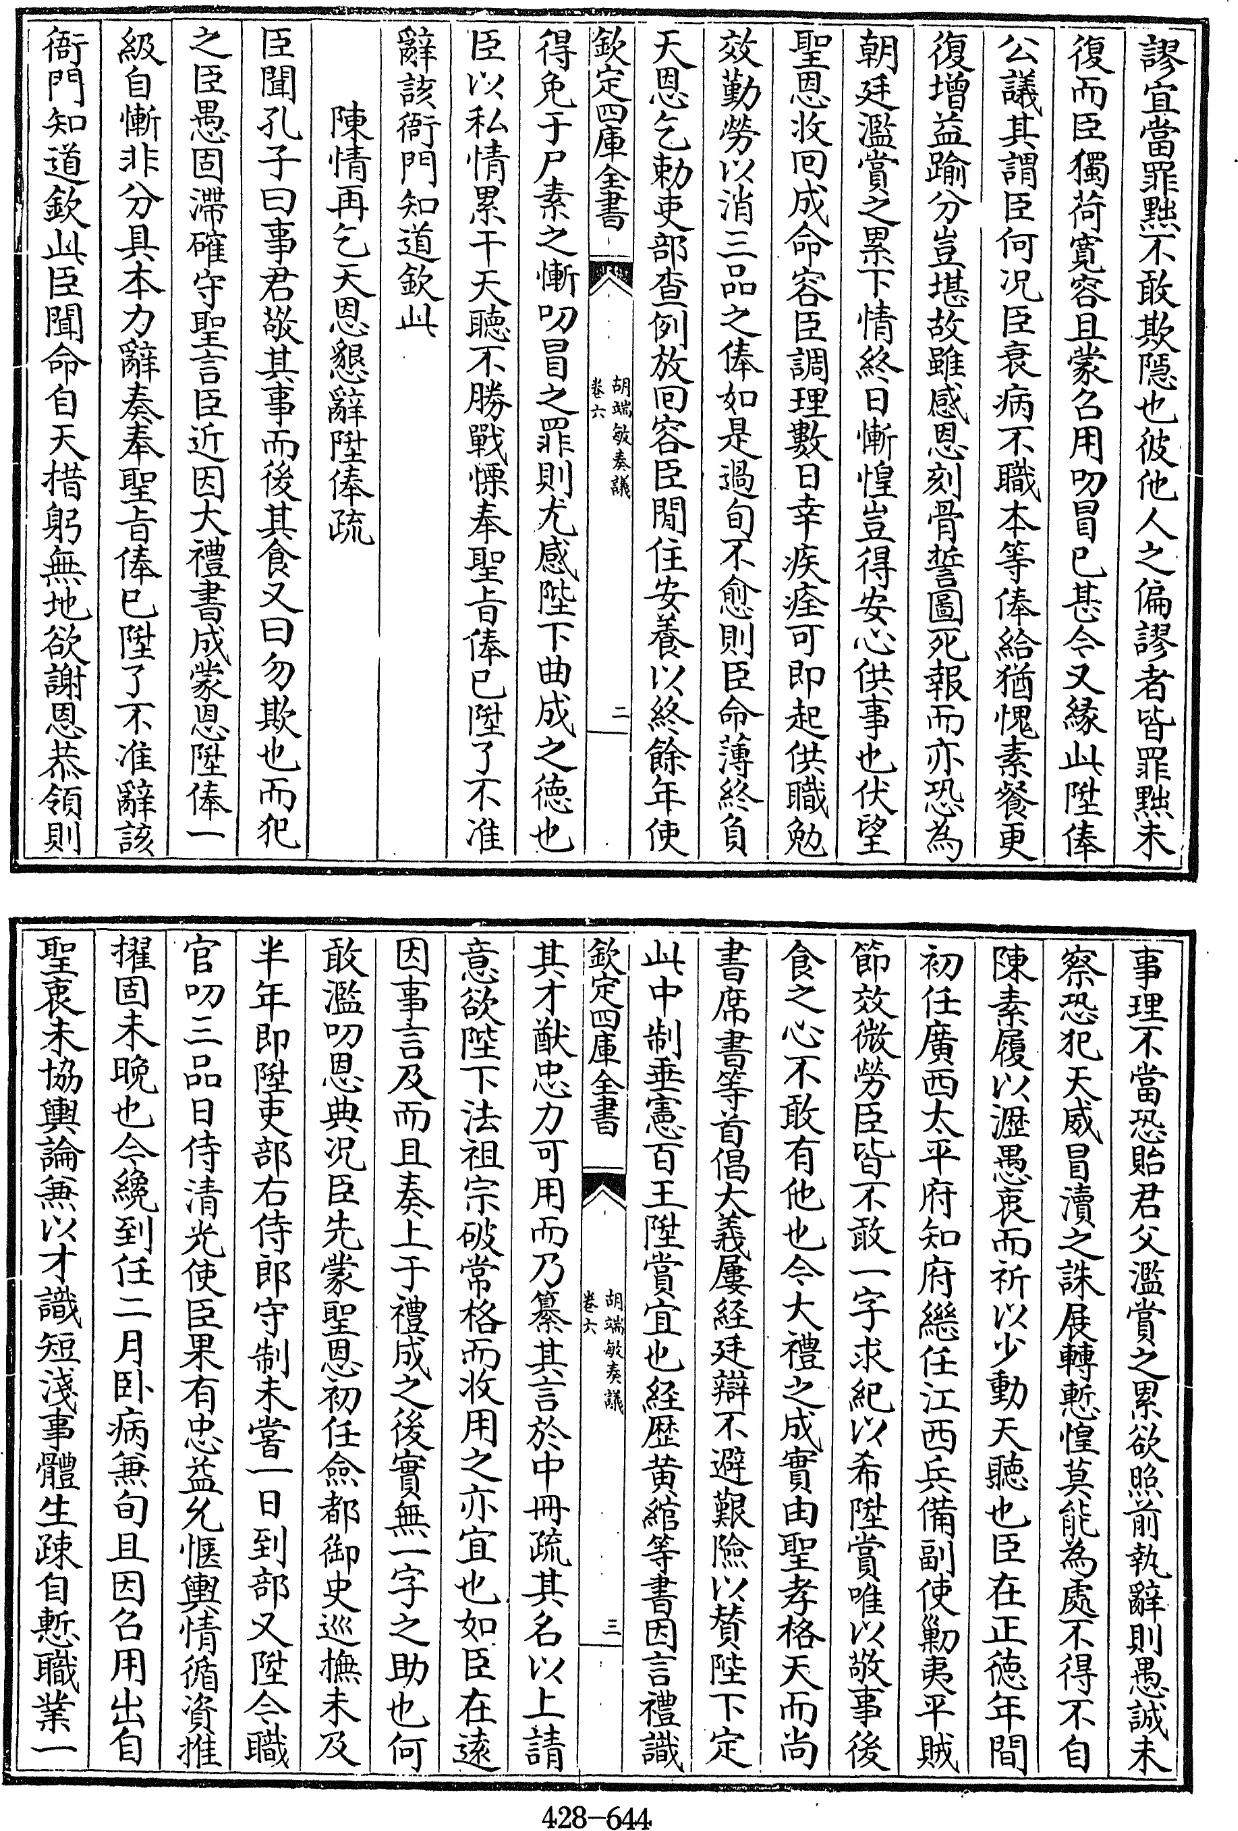 謬宜當罪黜不敢欺隱也彼他人之偏謬者皆罪黜未
復而臣獨荷寛容且蒙召用叨冒已甚今又縁此陞俸
公議其謂臣何况臣衰病不職本等俸給猶愧素餐更
復増益踰分豈堪故雖感恩刻骨誓圖死報而亦恐為
朝廷濫賞之累下情終日慚惶豈得安心供事也伏望
聖恩收回成命容臣調理數日幸疾痊可即起供職勉
效勤勞以消三品之俸如是過旬不愈則臣命薄終負
天恩乞勅吏部查例放回容臣閒住安養以終餘年使
欽定四庫全書
胡端敏奏議
卷六
二
得免于尸素之慚叨冒之罪則尤感陛下曲成之徳也
臣以私情累干天聽不勝戰慄奉聖旨俸已陞了不准
辭該衙門知道欽此
陳情再乞天恩懇辭陞俸疏
臣聞孔子曰事君敬其事而後其食又曰勿欺也而犯
之臣愚固滯確守聖言臣近因大禮書成蒙恩陞俸一
級自慚非分具本力辭奏奉聖旨俸已陞了不准辭該
衙門知道欽此臣聞命自天措躬無地欲謝恩恭領則
事理不當恐貽君父濫賞之累欲照前執辭則愚誠未
察恐犯天威冒瀆之誅展轉慙惶莫能為處不得不自
陳素履以瀝愚衷而祈以少動天聽也臣在正徳年間
初任廣西太平府知府繼任江西兵備副使勦夷平賊
節效微勞臣皆不敢一字求紀以希陞賞唯以敬事後
食之心不敢有他也今大禮之成實由聖孝格天而尚
書席書等首倡大義屢經廷辯不避艱險以賛陛下定
此中制垂憲百王陞賞宜也経歴黄綰等書因言禮識
欽定四庫全書
胡端敏奏議
卷六
三
其才猷忠力可用而乃纂其言於中冊疏其名以上請
意欲陛下法祖宗破常格而收用之亦宜也如臣在逺
因事言及而且奏上于禮成之後實無一字之助也何
敢濫叨恩典况臣先蒙聖恩初任僉都御史巡撫未及
半年即陞吏部右侍郎守制未嘗一日到部又陞今職
官叨三品日侍清光使臣果有忠益允愜輿情循資推
擢固未晩也今纔到任二月卧病兼旬且因召用出自
聖衷未協輿論兼以才識短淺事體生疎自慙職業一
428-644